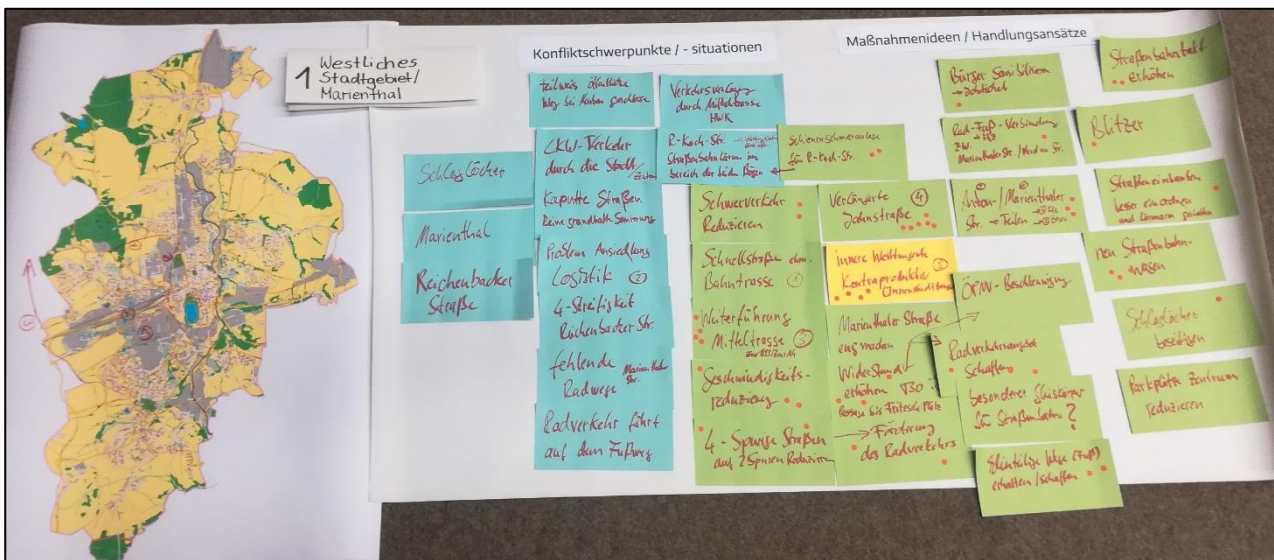 1 Westliches
Stadtgebiet/
Marienthal
Konfliktschwerpunkte / - situationen
Maßnahmenideen / Handlungsansätze
Schlaglöcher
Marienthal
Reichenbacher
Straße
teilweis öffentliche
Weg bei
LKW-Verkehr
durch die Stadt/
Zentrum
Kaputte Straßen
Keine grundhafte Sanierung
Problem Ansiedlung
Logistik ②
4-Streifigkeit
Reichenbacher Str.
fehlende Marienthaler
Radwege Str.
Radverkehr fährt
auf dem Fußweg
Verkehrsverlagerung
durch Mitteltrasse
HWK
R-Koch-Str.
Straßenbahnlärm im
bereich der beiden Bögen
Schienenschmieranlage
für R-Koch-Str.
Schwerverkehr
Reduzieren
Schnellstraße ehm.
Bahntrasse
Weiterführung
Mitteltrasse ③
Geschwindigkeits-
reduzierung
4-Spurige Straßen
auf 2 Spuren Reduzieren
Verlängerte ④
Jahnstraße
innere Westtangente
Kontraproduktiv
Marienthaler Straße
eng machen
Widerstand
erhöhen T30
→ Förderung
des Radverkehrs
Bürger Sensibilisieren
Rad-Fuß-Verbindung
zw.
Marienthaler Str. / Werdauer Str.
Anton-/Marienthaler
Str. → Teilen
ÖPNV-Beschleunigung
Radverkehrsangebot
Schaffen
besonderer Gleiskörper
für Straßenbahn?
Kleinteilige Wege (Fuß)
erhalten/schaffen
Straßenbahntakt
erhöhen
Blitzer
Straßeneinbauten
besser einordnen
und
neu Straßenbahn-
wagen
Schlaglöcher
beseitigen
Parkplätze Zentrum
reduzieren